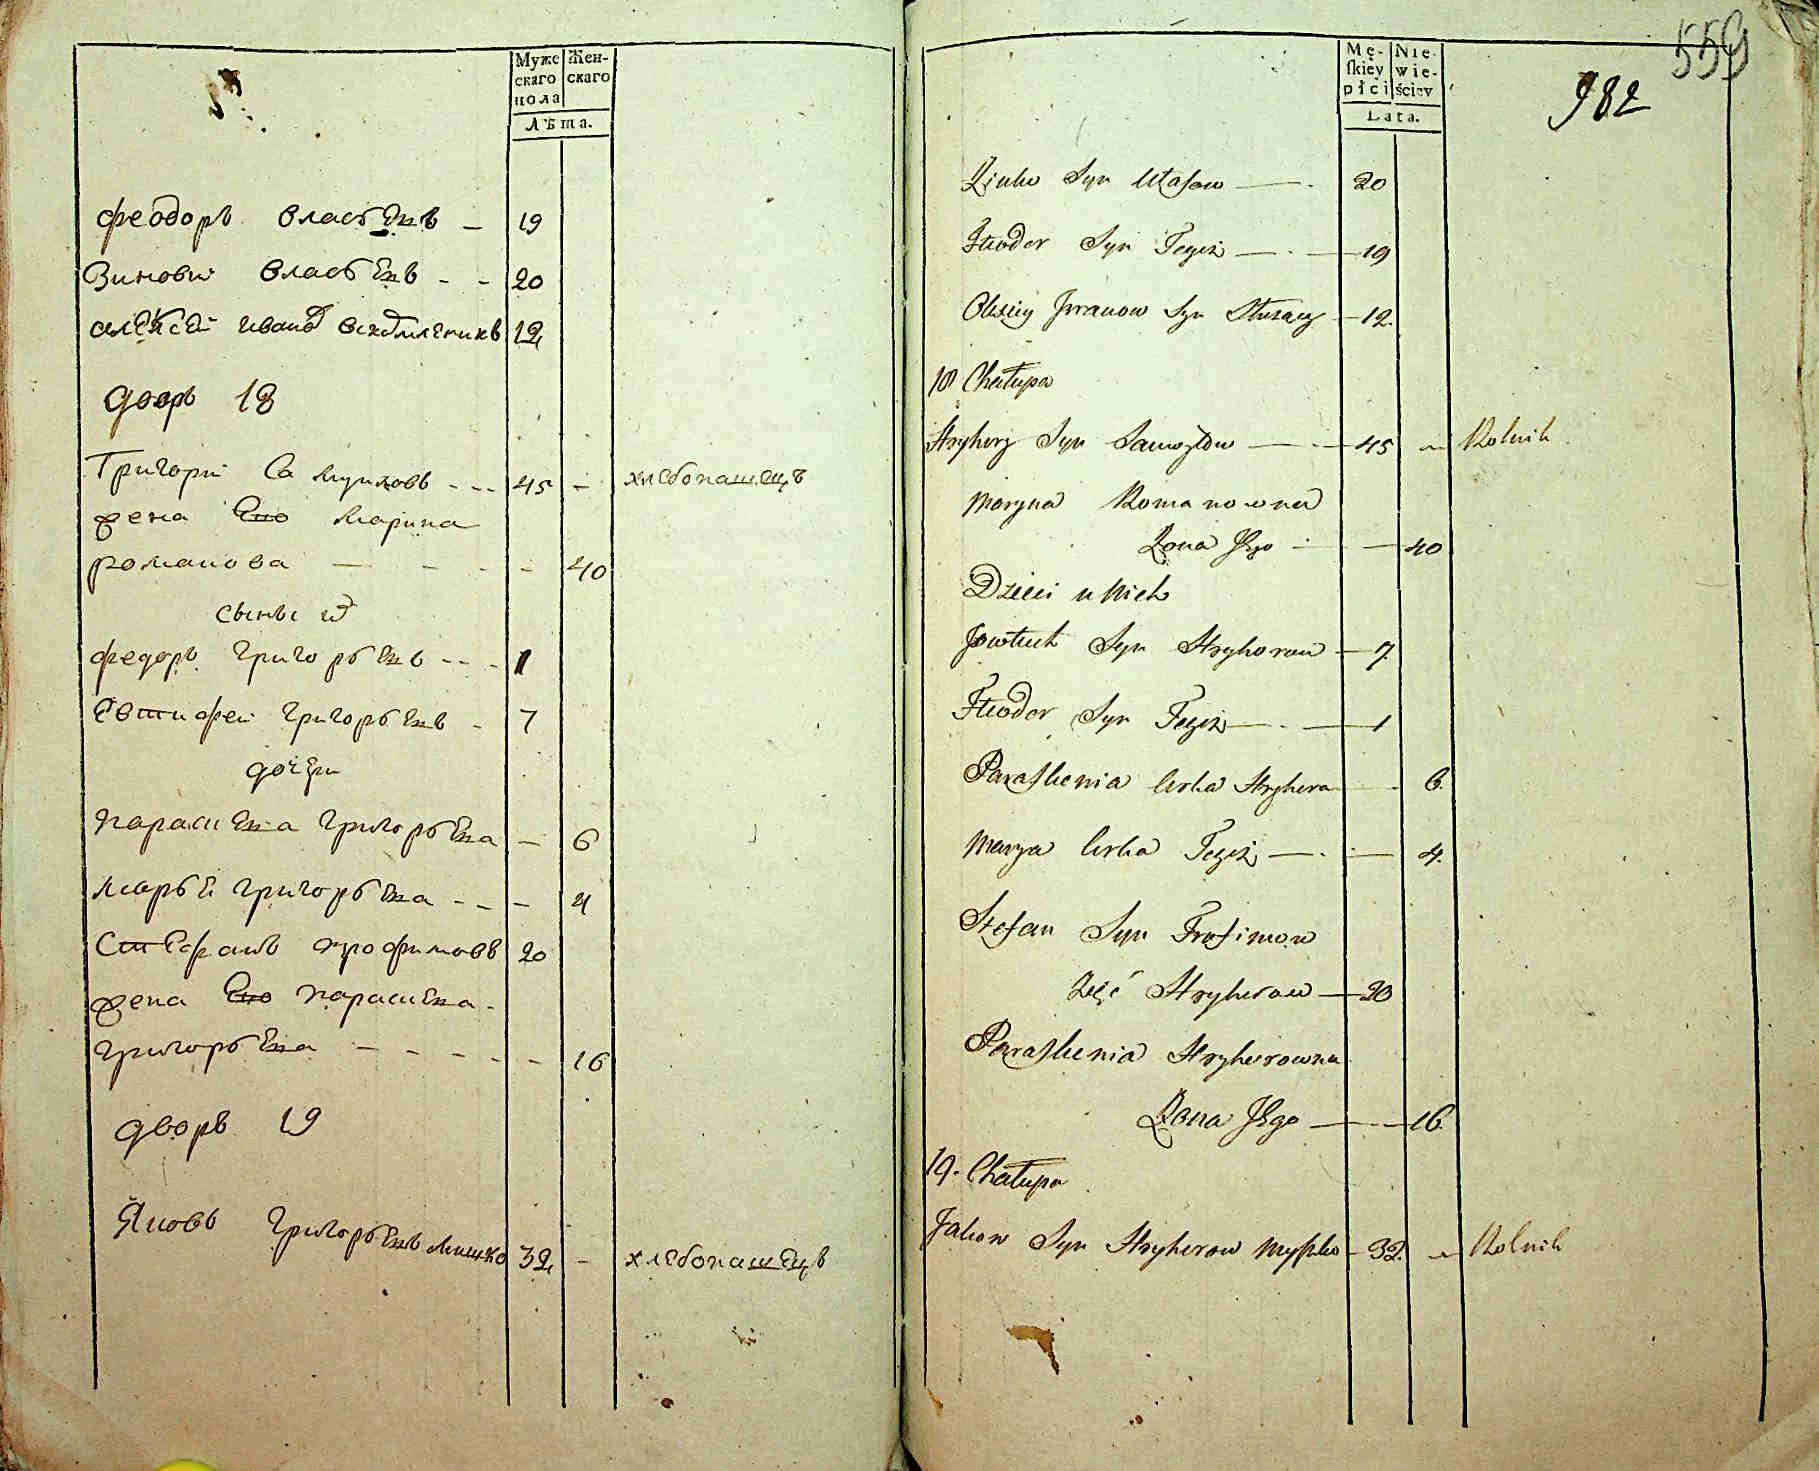 Муже
скаго
пола
Жен-
скаго
Лѣта.
Феодоръ Власѣевъ — 19
Зиновии Власѣевъ - - 20
Алексѣй Иванов 12
дворъ 18
Григорий Самуиловъ - - - 45 - хлебопашецъ
жена Ево Марина
романова — - - - - 40
сыны их
федоръ Григорѣевъ - - - 1
Евтифеи Григорѣевъ - 7
дочери
параскева Григорѣева — 6
Марѣя Григорѣева - - - 4
Стефанъ трофимовъ 20
жена Ево параскева -
Григорѣева - - - - - - 16
дворъ 19
Яковъ Григорѣевъ Мишко 32 - хлебопашецъ
Mę-
skiey
płci
Nie-
wie-
ściey
Lata.
559
982
Zinko Syn Własow — . 20
Fteodor Syn Tegoż — . — 19
Olexiey Jwanow Syn Służący — 12.
18 Chałupa
Hryhory Syn Samoyłow — . — 45 — Rolnik
Maryna Romanowna
Żona Jego — — 40
Dzieci u Nich
Jowtuch Syn Hryhorow — 7.
Fteodor Syn Tegoż — . — 1
Paraskienia Curka Hryhora — . 6.
Marya Curka Tegoż — . — 4.
Stefan Syn Trofimow
Zięć Hryhorow — 20
Paraskienia Hryhorowna
Żona Jego — . — 16.
19. Chałupa
Jakow Syn Hryhorow Myszko — 32. — Rolnik